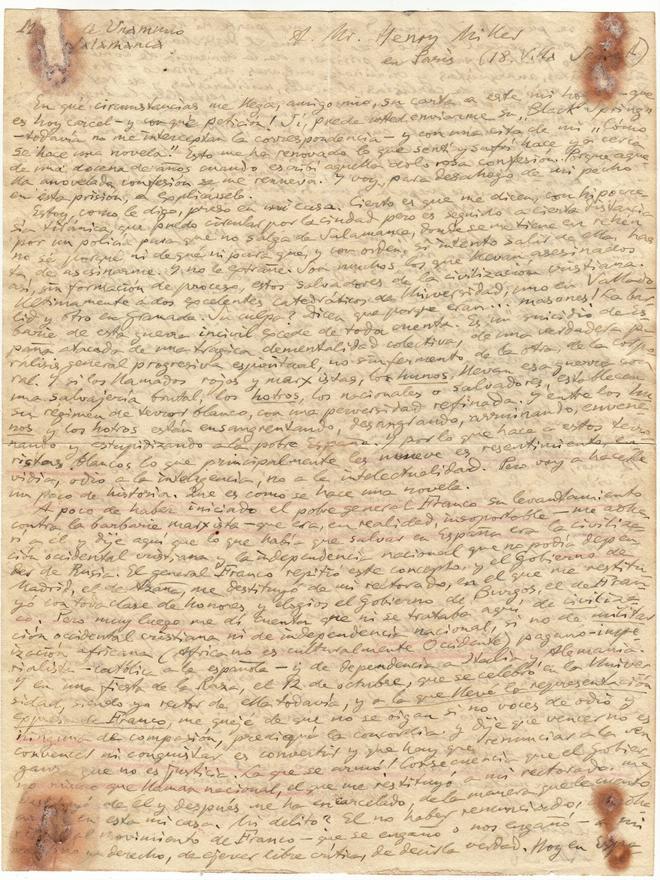 de Unamuno
Salamanca
A Mr. Henry Miller
en Paris (18. Villa
En que circunstancias me llega, amigo mio, su carta a este mi que
es hoy carcel - y con que peticion! Si, puede usted enviarme su „Black Spring"
- todavia no me interceptan la correspondencia - y con una cita de mi „Cómo
se hace una novela". Esto me ha renovado lo que senti y sufri hace ya cerca
de una docena de años cuando escribi aquella dolorosa confesion. Porque aque
lla anovelada confesion se me renueva. Y voy, para desahogo de mi pecho
en esta prision, a explicarselo.
Estoy, como le digo, preso en mi casa. Cierto es que me dicen, con hipocre
sia tiranica, que puedo circular por la ciudad pero es seguido a cierta distancia
por un policia para que no salga de Salamanca, donde se me tiene en rehen,
no sé porqué ni de qué ni para qué, y con orden, si intento salir de ella, has
ta de asesinarme. Y no le extrañe. Son muchos los que llevan asesinados
asi, sin formacion de proceso, estos salvadores de la civilizacion cristiana.
Ultimamente a dos excelentes catedráticos de Universidad, uno en Vallado
lid y otro en Granada. Su culpa? Dicen que porque eran... masones! La bar
barie de esta guerra incivil excede de toda cuenta. Es un suicidio de Es
paña atacada de una tragica dementalidad colectiva, de una verdadera pa
ralisis general progresiva espiritual, no sin fermento de la otra, de la corpo
ral. Y si los llamados rojos y marxistas, los hunos, llevan esa guerra con
una salvajeria brutal, los hotros, los nacionales o salvadores, establecen
su régimen de terror blanco, con una perversidad refinada. Y entre los hu
nos y los hotros están ensangrentando, desangrando, arruinando, envene
nando y estupidizando a la pobre España. Y por lo que hace a estos terro
ristas blancos lo que principalmente les mueve es resentimiento, en
vidia, odio a la inteligencia, no a la intelectualidad. Pero voy a hacerle
un poco de historia. Que es como se hace una novela.
A poco de haber iniciado el pobre general Franco su levantamiento
contra la barbarie marxista - que era, en realidad, insoportable - me adhe
ri a él y dije aqui que lo que habia que salvar en España era la civiliza
ción occidental cristiana y la independencia nacional que no podia depen
der de Rusia. El general Franco repitió este concepto. Y el Gobierno de
Madrid, el de Azaña, me destituyó de mi rectorado, en el que me restitu
yó con toda clase de honores y elogios el Gobierno de Burgos, el de Fran
co. Pero muy luego me di cuenta que ni se trataba aqui de civiliza
ción occidental cristiana ni de independencia nacional, si no de militar
ización africana (Africa no es culturalmente Occidente) pagano-impe
rialista - católica a la española - y de dependencia a Italia y Alemania.
Y en una fiesta de la Raza, el 12 de octubre, que se celebró en la Univer
sidad, siendo yo rector de ella todavia, y a la que llevé la representación
expresa de Franco, me quejé de que no se oigan si no voces de odio y
ninguna de compasión, prediqué la concordia y dije que vencer no es
convencer ni conquistar es convertir y que hay que renunciar a la ven
ganza que no es justicia. La que se armó! Consecuencia que el Gobier
no mismo que llaman nacional, el que me restituyó a mi rectorado, me
de él y después me ha encarcelado, de la manera que le cuento,
en esta mi casa. Mi delito? El no haber renunciado,
movimiento de Franco - que se engañó o nos engañó - a mi
derecho, de ejercer libre critica, de decir la verdad. Hoy en Espa